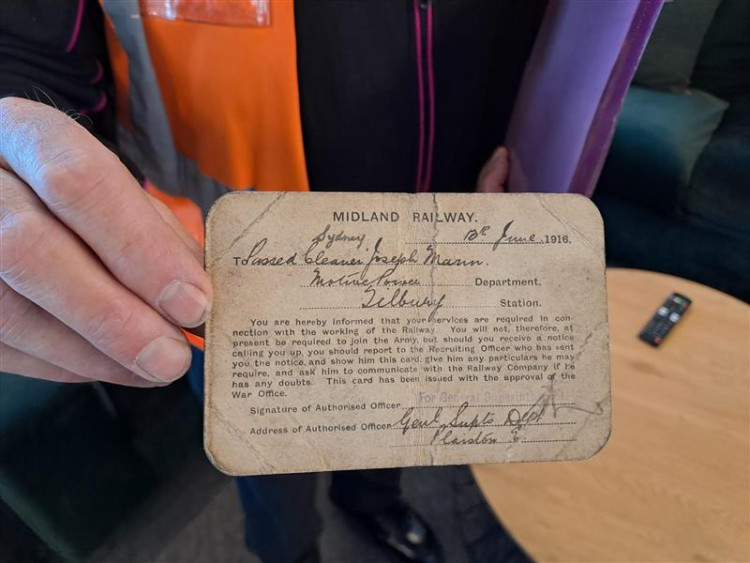 MIDLAND RAILWAY.
Sydney
13th June 1916.
To Passed Cleaner Joseph Mann.
Motive Power Department.
Tilbury Station.
You are hereby informed that your services are required in con-
nection with the working of the Railway. You will not, therefore, at
present be required to join the Army, but should you receive a notice
calling you up, you should report to the Recruiting Officer who has sent
you the notice, and show him this card, give him any particulars he may
require, and ask him to communicate with the Railway Company if he
has any doubts. This card has been issued with the approval of the
War Office.
For General Superint
Signature of Authorised Officer
Address of Authorised Officer Genl Supts Dept
Plaistow E.